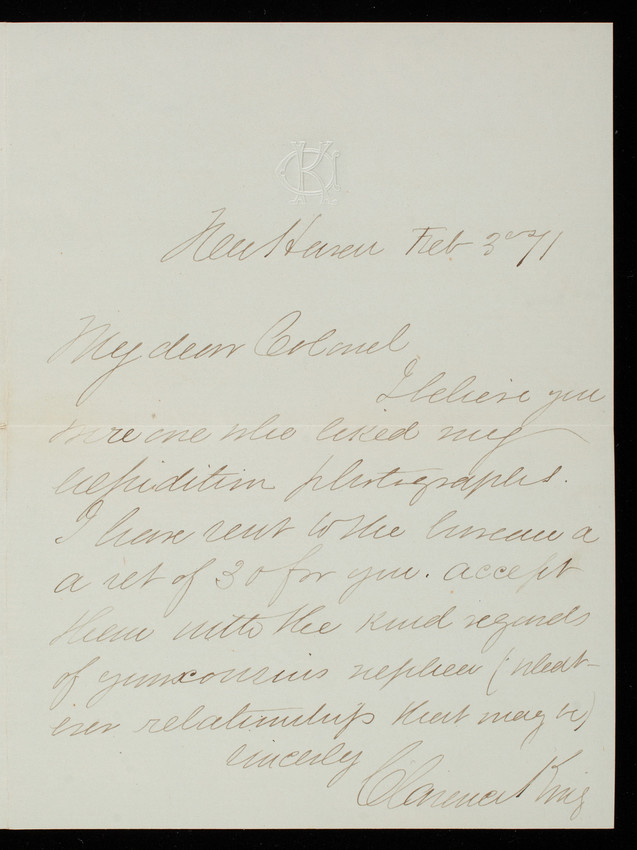 New Haven Feb 3rd 71
My dear Colonel
I believe you
were one who liked my
expidition photographs.
I have sent to the bureau a
a set of 30 for you. accept
them with the kind regards
of your cousins nephew (what-
ever relationship that may be)
sincerly
Clarence King